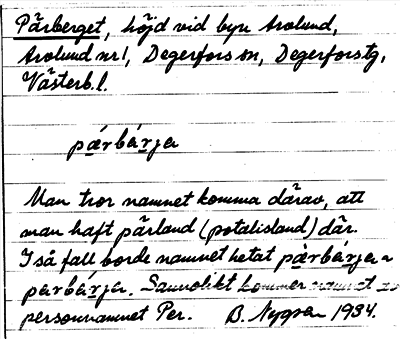 Pärberget, höjd vid byn Arolund,
Arolund nr 1, Degerfors sn, Degerfors tg,
Västerb. l.
pärbárja
Man tror namnet komma därav, att
man haft pärland (potatisland) där.
I så fall borde namnet hetat pàrbárja
parbárja. Sannolikt kommer namnet
personnamnet Per. B. Nygren 1934.